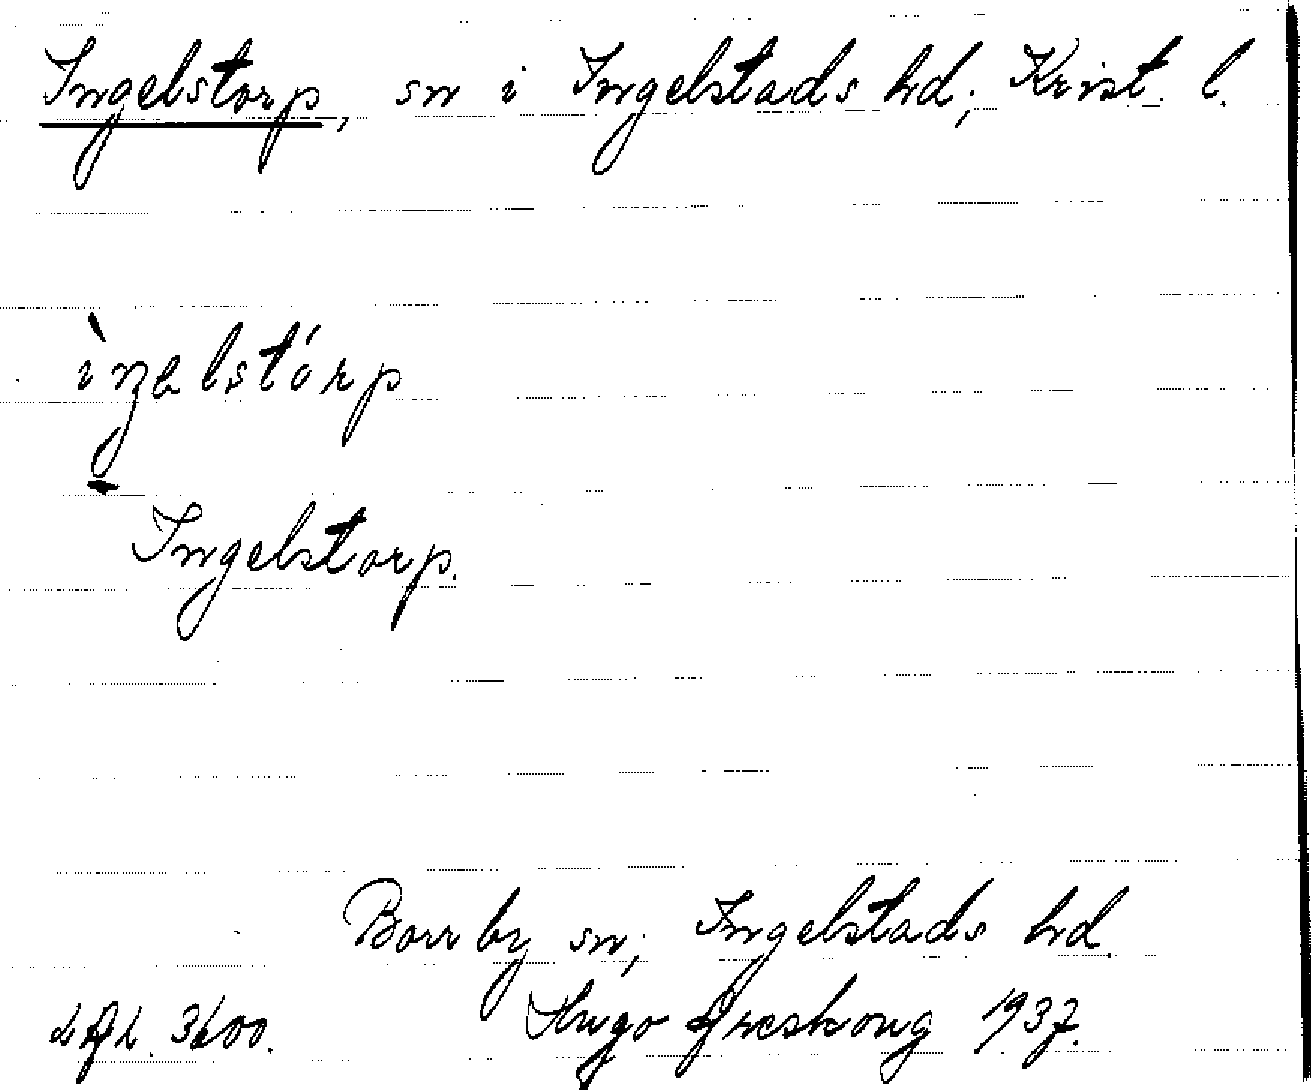 Ingelstorp, sn i Ingelstads hd, Krist. l.
Ingelstorp.
Borrby sn, Ingelstads hd.
Hugo Areskoug 1937.